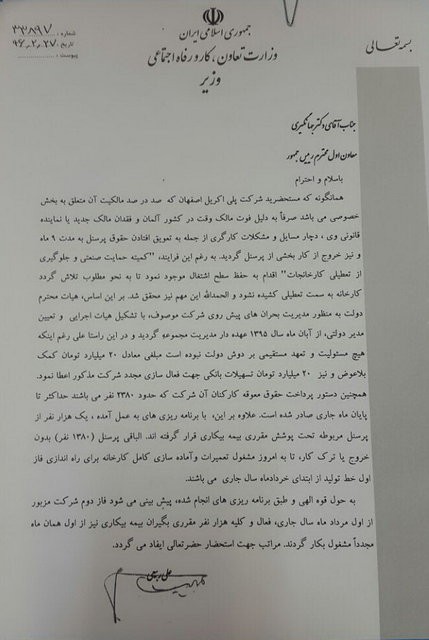 جمهوری اسلامی ایران
وزارت تعاون، کار و رفاه اجتماعی
وزیر
بسمه تعالی
شماره: ۳۳۸۹۷
تاریخ: ۹۶٫۲٫۲۷
پیوست:
جناب آقای دکتر جهانگیری
معاون اول محترم رییس جمهور
باسلام و احترام
همانگونه که مستحضرید شرکت پلی اکریل اصفهان که صد در صد مالکیت آن متعلق به بخش
خصوصی می باشد صرفاً به دلیل فوت مالک وقت در کشور آلمان و فقدان مالک جدید یا نماینده
قانونی وی، دچار مسایل و مشکلات کارگری از جمله به تعویق افتادن حقوق پرسنل به مدت ۹ ماه
و نیز خروج از کار بخشی از پرسنل گردید. به رغم این فرایند، "کمیته حمایت صنعتی و جلوگیری
از تعطیلی کارخانجات" اقدام به حفظ سطح اشتغال موجود نمود تا به نحو مطلوب تلاش گردد
کارخانه به سمت تعطیلی کشیده نشود و الحمدالله این مهم نیز محقق شد. بر این اساس، هیات محترم
دولت به منظور مدیریت بحران های پیش روی شرکت موصوف، با تشکیل هیات اجرایی و تعیین
مدیر دولتی، از آبان ماه سال ۱۳۹۵ عهده دار مدیریت مجموعه گردید و در این راستا علی رغم اینکه
هیچ مسئولیت و تعهد مستقیمی بر دوش دولت نبوده است مبلغی معادل ۲۰ میلیارد تومان کمک
بلاعوض و نیز ۲۰ میلیارد تومان تسهیلات بانکی جهت فعال سازی مجدد شرکت مذکور اعطا نمود.
همچنین دستور پرداخت حقوق معوقه کارکنان آن شرکت که حدود ۲۳۸۰ نفر می باشند حداکثر تا
پایان ماه جاری صادر شده است. علاوه بر این، با برنامه ریزی های به عمل آمده، یک هزار نفر از
پرسنل مربوطه تحت پوشش مقرری بیمه بیکاری قرار گرفته اند. الباقی پرسنل (۱۳۸۰ نفر) بدون
خروج یا ترک کار، تا به امروز مشغول تعمیرات وآماده سازی کامل کارخانه برای راه اندازی فاز
اول خط تولید از ابتدای خردادماه سال جاری می باشند.
به حول قوه الهی و طبق برنامه ریزی های انجام شده، پیش بینی می شود فاز دوم شرکت مزبور
از اول مرداد ماه سال جاری، فعال و کلیه هزار نفر مقرری بگیران بیمه بیکاری نیز از اول همان ماه
مجدداً مشغول بکار گردند. مراتب جهت استحضار حضرتعالی ایفاد می گردد.
علی ربیعی